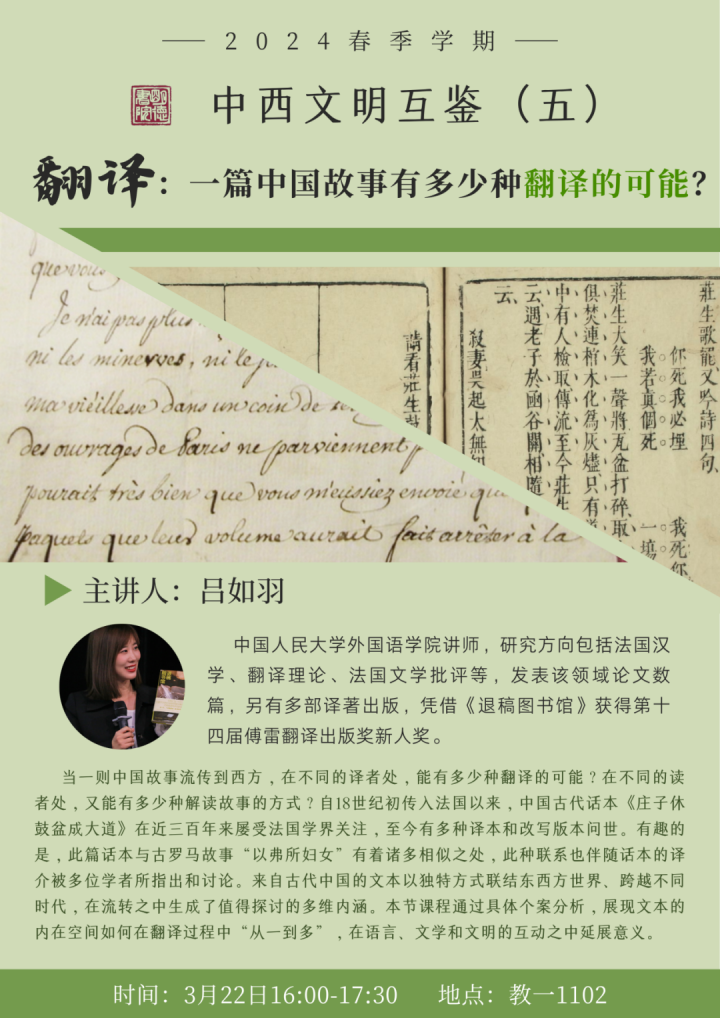 2024春季学期
明德書院
中西文明互鉴（五）
翻译：一篇中国故事有多少种翻译的可能？
que vous
Je n'ai pas plus
ni les minerves, ni le
ma viéillesse dans un coin de
des ouvrages de Paris ne parviennent
pourait très bien que vous m'eussiez envoié
paquets que leur volume aurait fait arrêter à la
莊生歌罷又吟詩四句
你死我必埋
我死你
我若真個死
一場
莊生大笑一聲將瓦盆打碎取
俱焚連棺木化為灰燼只有
中有人檢取傳流至今莊生
云遇老子於函谷關相隨
云
殺妻吳起太無知
請看莊生鼓
主讲人：吕如羽
中国人民大学外国语学院讲师，研究方向包括法国汉
学、翻译理论、法国文学批评等，发表该领域论文数
篇，另有多部译著出版，凭借《退稿图书馆》获得第十
四届傅雷翻译出版奖新人奖。
当一则中国故事流传到西方，在不同的译者处，能有多少种翻译的可能？在不同的读
者处，又能有多少种解读故事的方式？自18世纪初传入法国以来，中国古代话本《庄子休
鼓盆成大道》在近三百年来屡受法国学界关注，至今有多种译本和改写版本问世。有趣的
是，此篇话本与古罗马故事“以弗所妇女”有着诸多相似之处，此种联系也伴随话本的译
介被多位学者所指出和讨论。来自古代中国的文本以独特方式联结东西方世界、跨越不同
时代，在流转之中生成了值得探讨的多维内涵。本节课程通过具体个案分析，展现文本的
内在空间如何在翻译过程中“从一到多”，在语言、文学和文明的互动之中延展意义。
时间：3月22日16:00-17:30 地点：教一1102